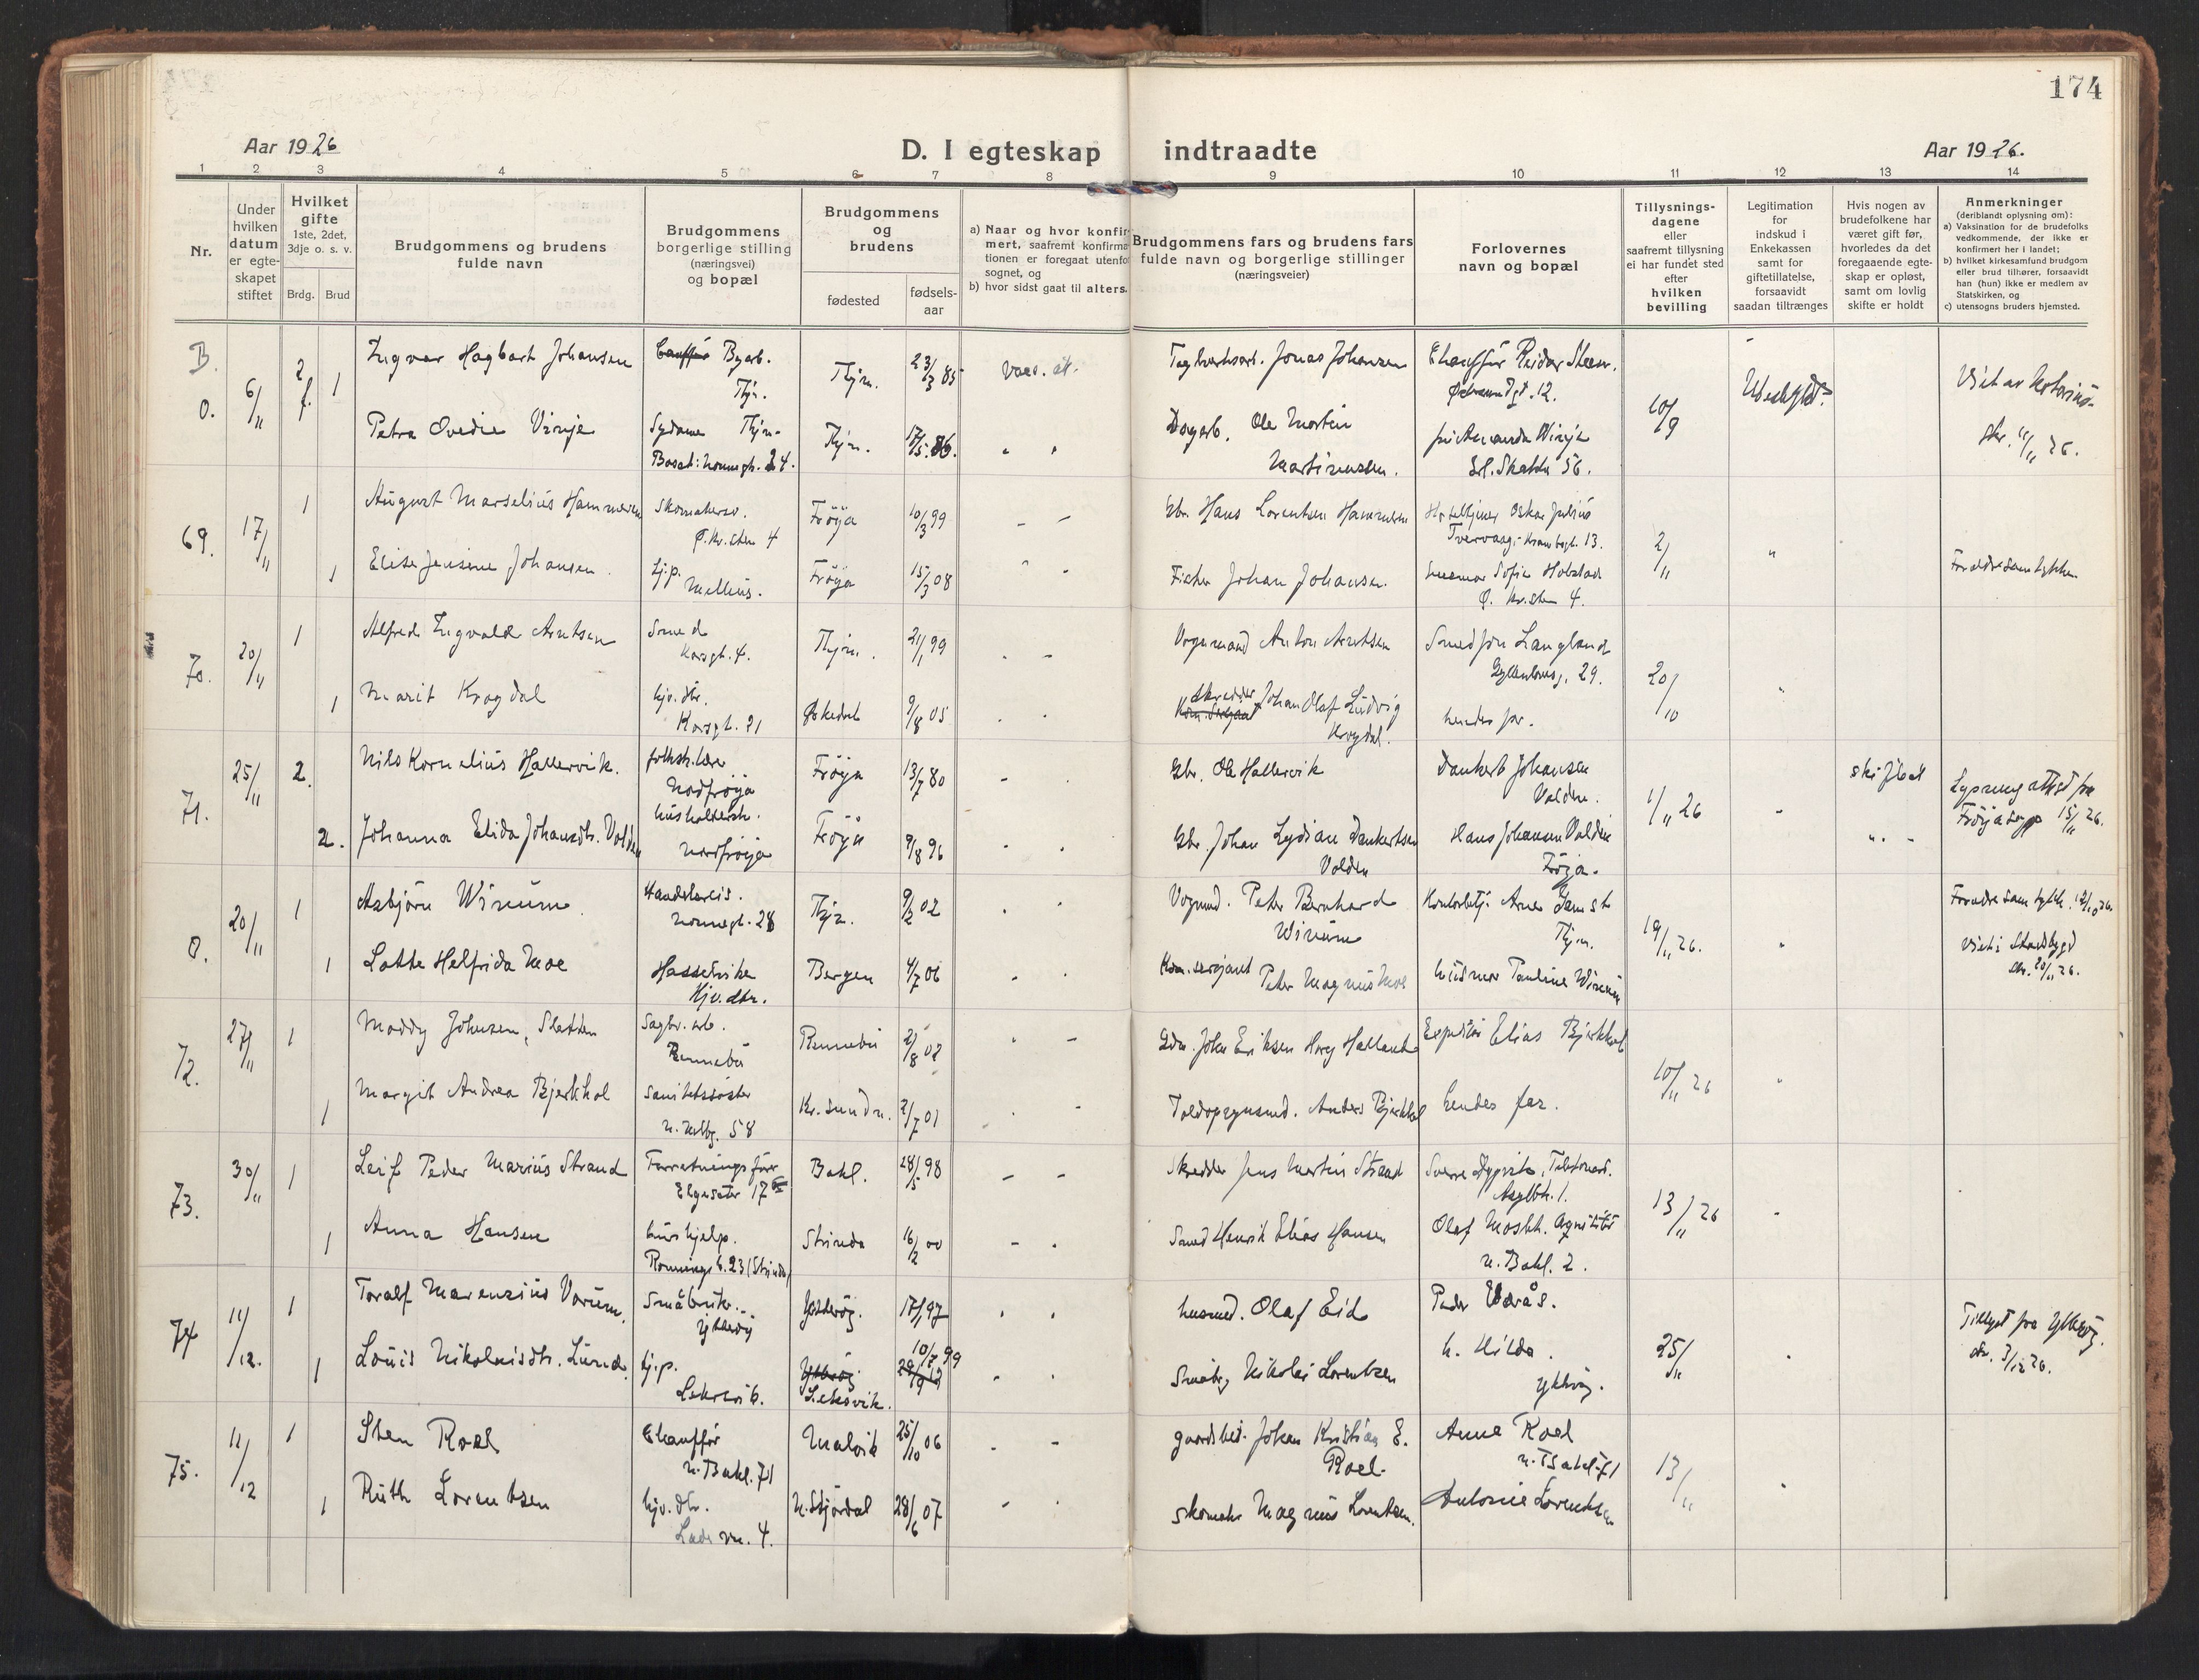 174
Aar 1926
D. I egteskap indtraadte
Aar 1926.
1 2 3 4 5 6 7 8 9 10 11 12 13 14
Nr.
Under
hvilken
datum
er egte-
skapet
stiftet
Hvilket
gifte
1ste, 2det,
3dje o. s. v.
Brdg. Brud
Brudgommens og brudens
fulde navn
Brudgommens
borgerlige stilling
(næringsvei)
og bopæl
Brudgommens
og
brudens
fødested
fødsels-
aar
a) Naar og hvor konfir-
mert, saafremt konfirma-
tionen er foregaat utenfo
sognet, og
b) hvor sidst gaat til alters.
Brudgommens fars og brudens fars
fulde navn og borgerlige stillinger
(næringsveier)
Forlovernes
navn og bopæl
Tillysnings-
dagene
eller
saafremt tillysning
ei har fundet sted
efter
hvilken
bevilling
Legitimation
for
indskud i
Enkekassen
samt for
giftetillatelse,
forsaavidt
saadan tiltrænges
Hvis nogen av
brudefolkene har
været gift før,
hvorledes da det
foregaaende egte-
skap er opløst,
samt om lovlig
skifte er holdt
Anmerkninger
(deriblandt oplysning om):
a) Vaksination for de brudefolks
vedkommende, der ikke er
konfirmert her i landet;
b) hvilket kirkesamfund brudgom
eller brud tilhører, forsaavidt
han (hun) ikke er medlem av
Statskirken, og
c) utensogns bruders hjemsted.
B.
0. 6/11 2 f. 1
Ingvar Hagbart Johansen
Byarb.
Thjm.
Thjm. 23/3 85
Jonas Johansen
Chauffør Reidar Steen.
10/9
Petra Ovedie Vinje
Sydame Thjm.
Thjm. 17/5 86.
Dagarb. Ole Martin
Martinussen.
11/11 26.
69. 17/11 1
August Marselius Hammeren
Skomakersv.
Ø. Kr.sten 4
Frøya 10/3 99
Gbr. Hans Lorentsen Hammeren
Oskar Julius
Tvervaag, Krambugt. 13.
2/11 "
1 Elise Jensine Johansen.
tj.p.
Frøya 15/3 08
Fisker Johan Johansen.
Husmor Sofie Holstad
Ø. Kr.sten 4.
Forældresamtykke.
70. 20/11 1
Alfred Ingvald Arntsen
Smed
Korsgt. 4.
Thjm. 21/1 99
Vognmand Anton Arntsen
Smed Jon Langland
Gyldenløvesg. 29.
20/10 "
1 Marit Krogdal
hjv. dtr.
Korsgt. 21
9/8 05
skredder Johan Olaf Ludvig
Krogdal.
hendes far.
71. 25/11 2.
Nils Kornelius Hallervik.
folksk.lærer
Nordfrøya
Frøya 13/7 80
Gbr. Ole Hallervik
Dankert Johansen
Valden.
1/11 26
skiftet
Lysningsattest fra
Frøya sogn 15/11 26.
2. Johanna Elida Johansdtr. Volden
husholdersk.
Nordfrøya
Frøya 9/8 96
Gbr. Johan Lydian Dankertsen
Volden
Hans Johansen Valden
Frøja.
0. 20/11 1
Asbjørn Winum.
Handelsreis.
Nonnegt. 28
Thjm. 9/2 02
Vognmd. Peter Bernhard
Winum
Kontorbetj. Arne
Thjm.
19/11 26.
Forældresamtykke. 12/10 26.
1 Lotte Helfrida Moe
Hjv. dtr.
Bergen 4/7 06
Kom. sergjant Peter Magnus Moe
husmor Pauline Winum
Viet i Stadsbygd
20/11 26.
72. 27/11 1
Moddy Johnsen, Sletten
Sagbr. arb.
Rennebu
Rennebu 2/8 02
Gdm. John Eriksen
Expeditør Elias Bjerkhol
10/11 26
1 Margit Andrea Bjerkhol
Sanitetssøster
58
Kr.sundn. 2/7 01
Toldopsynsmd. Anders Bjerkhol
hendes far.
73. 30/11 1
Leif Peder Marius Strand
Forretningsfører
Elgeseter 17
Bakl. 28/5 98
Skredder Jens Martin Strand
Sverre
13/11 26
1 Anna Hansen
hushjelp.
Rønnings b. 23 (Strinda)
Strinda 16/2 00
Smed Henrik Elias Hansen
Olaf Moskh.
n. Bakl. 2.
74 11/12. 1
Toralf Marensius Vorum.
Småbruker.
Ytterøy
Ytterøy. 17/1 97
husmd. Olaf Eid
Peder
25/11
Tillyst fra Ytterøy.
3/12 26.
1 Louis Nikolaisdtr. Lund.
tj.p.
Leksvik.
Leksvik. 10/7 99
Småbr. Nikolai Lorentzen
h. Hilda.
Ytterøy.
75. 11/12 1
Sten Roel
Chauffør
n. Bakl. 71
Malvik 25/10 06
gaardsbest. Johan Kristian E.
Roel.
Anna Roel
n. Bakl. 71
13/11
1 Ruth Lorentzen
hjv. dtr.
Lade vn. 4.
N. Stjørdal 28/6 07
skomaker Magnus Lorentzen.
Antonie Lorentzen